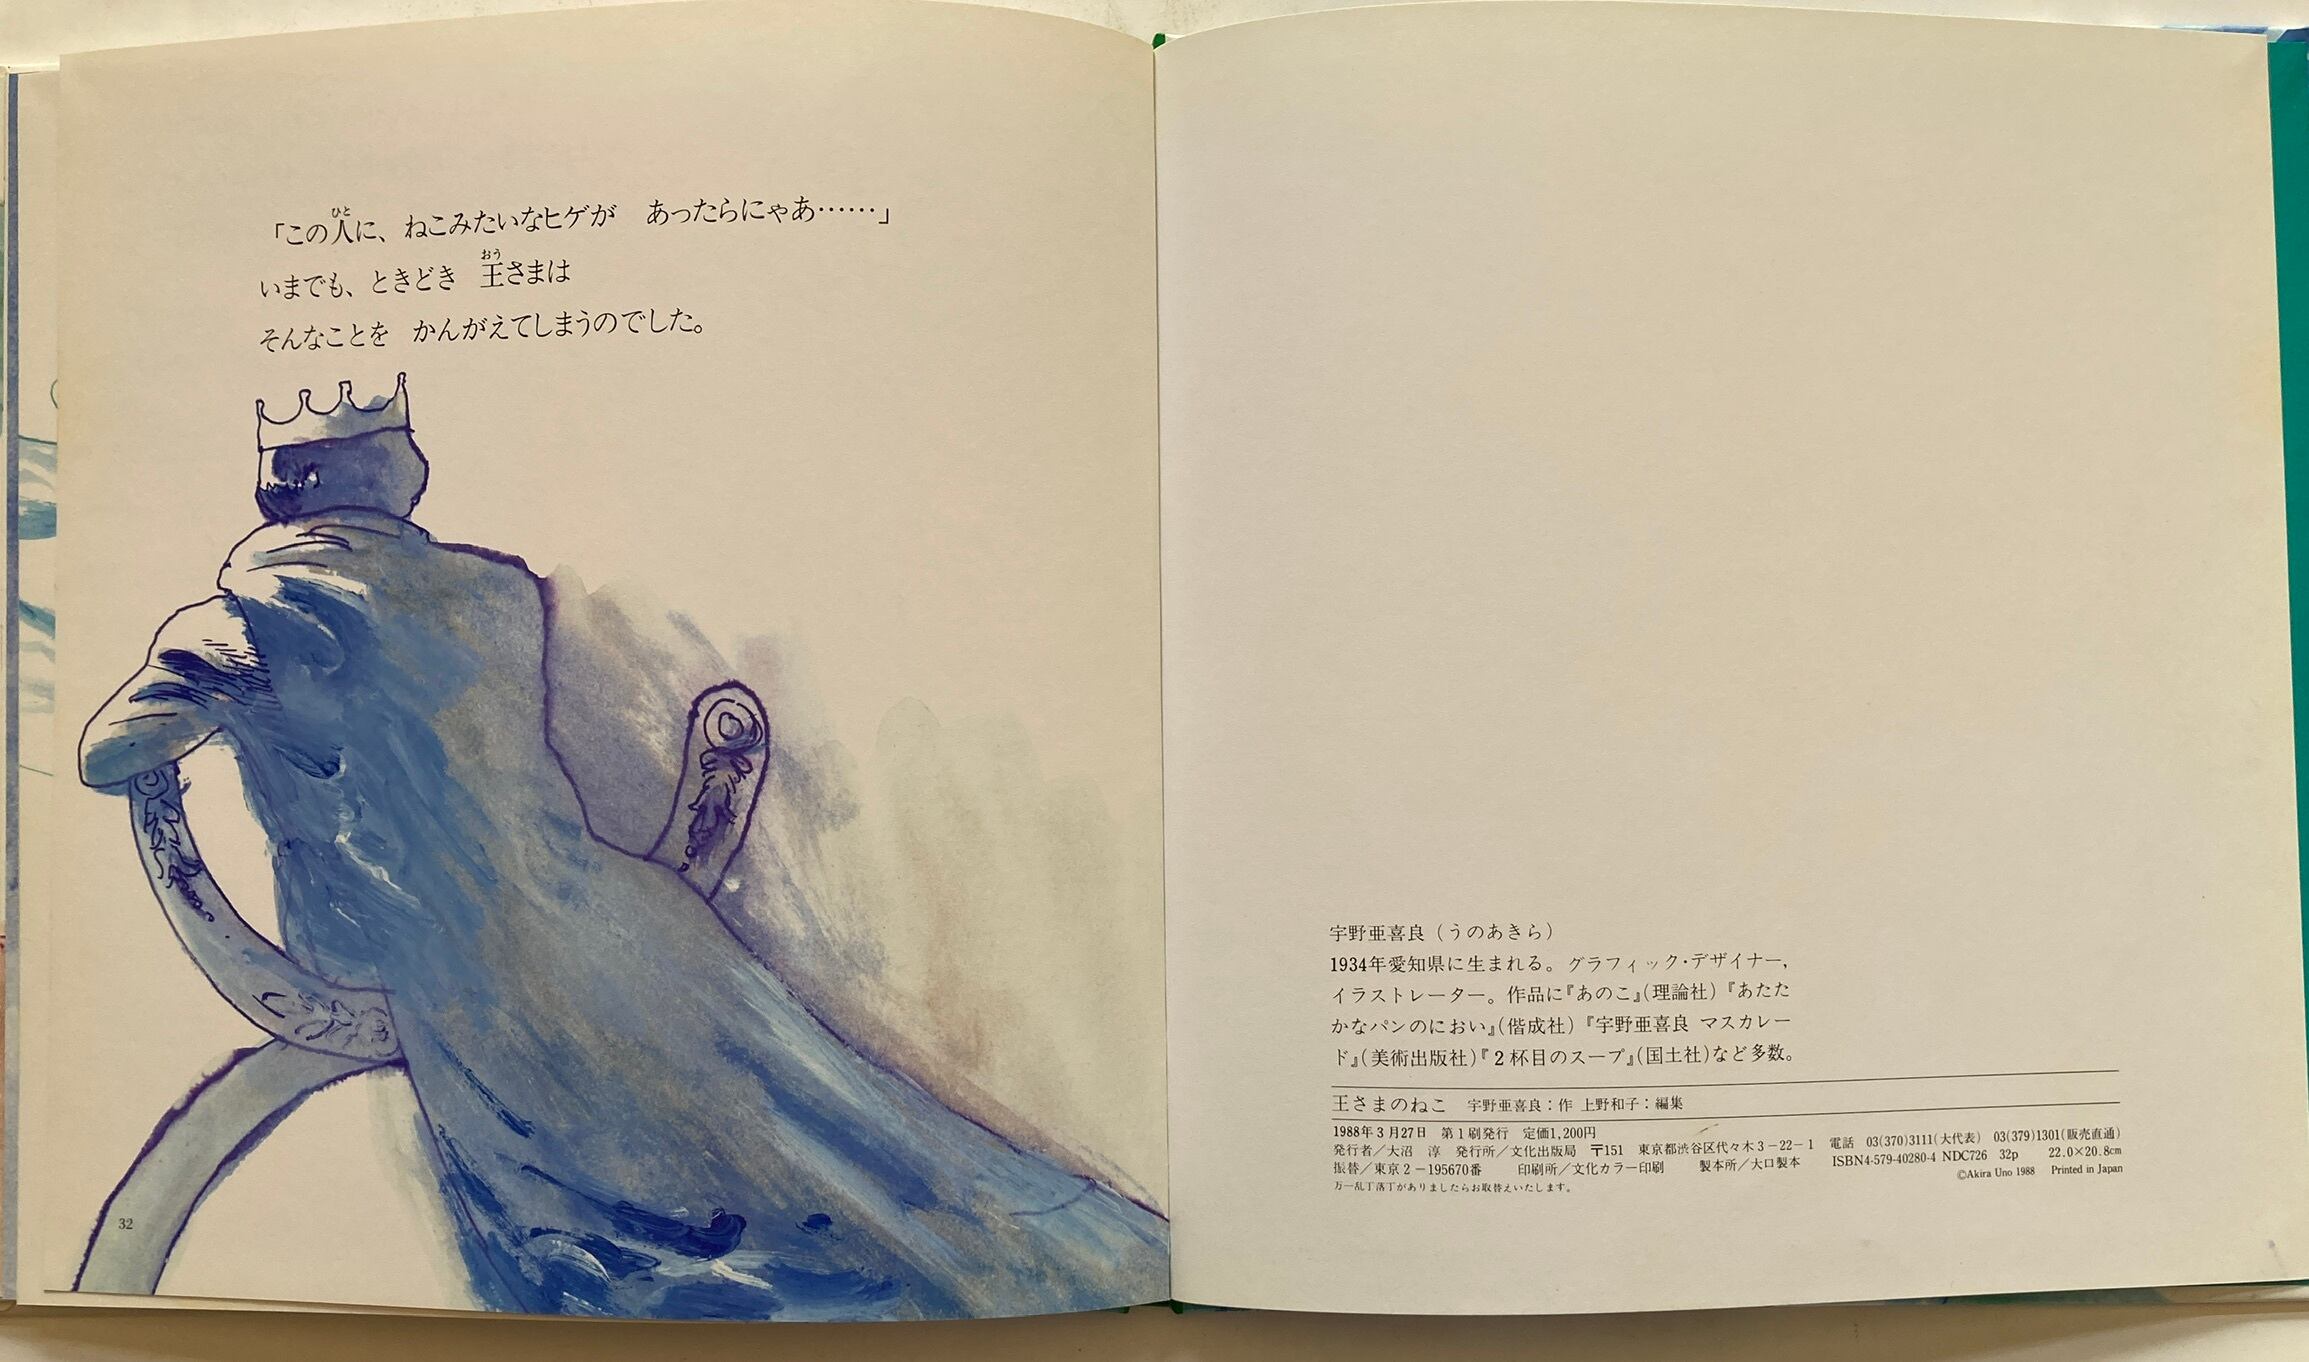 「この人に、ねこみたいなヒゲが　あったらにゃあ……」
いまでも、ときどき　王さまは
そんなことを　かんがえてしまうのでした。
32
宇野亜喜良（うのあきら）
1934年愛知県に生まれる。グラフィック・デザイナー,
イラストレーター。作品に『あのこ』(理論社)『あたた
かなパンのにおい』(偕成社)『宇野亜喜良 マスカレー
ド』(美術出版社)『2杯目のスープ』(国土社)など多数。
王さまのねこ　宇野亜喜良：作 上野和子：編集
1988年3月27日　第1刷発行　定価1,200円
発行者／大沼　淳　発行所／文化出版局　〒151　東京都渋谷区代々木3-22-1　電話　03(370)3111(大代表)　03(379)1301(販売直通)
振替／東京2-195670番　印刷所／文化カラー印刷　製本所／大口製本　ISBN4-579-40280-4 NDC726　32p　22.0×20.8cm
万一乱丁落丁がありましたらお取替えいたします。　©Akira Uno 1988　Printed in Japan